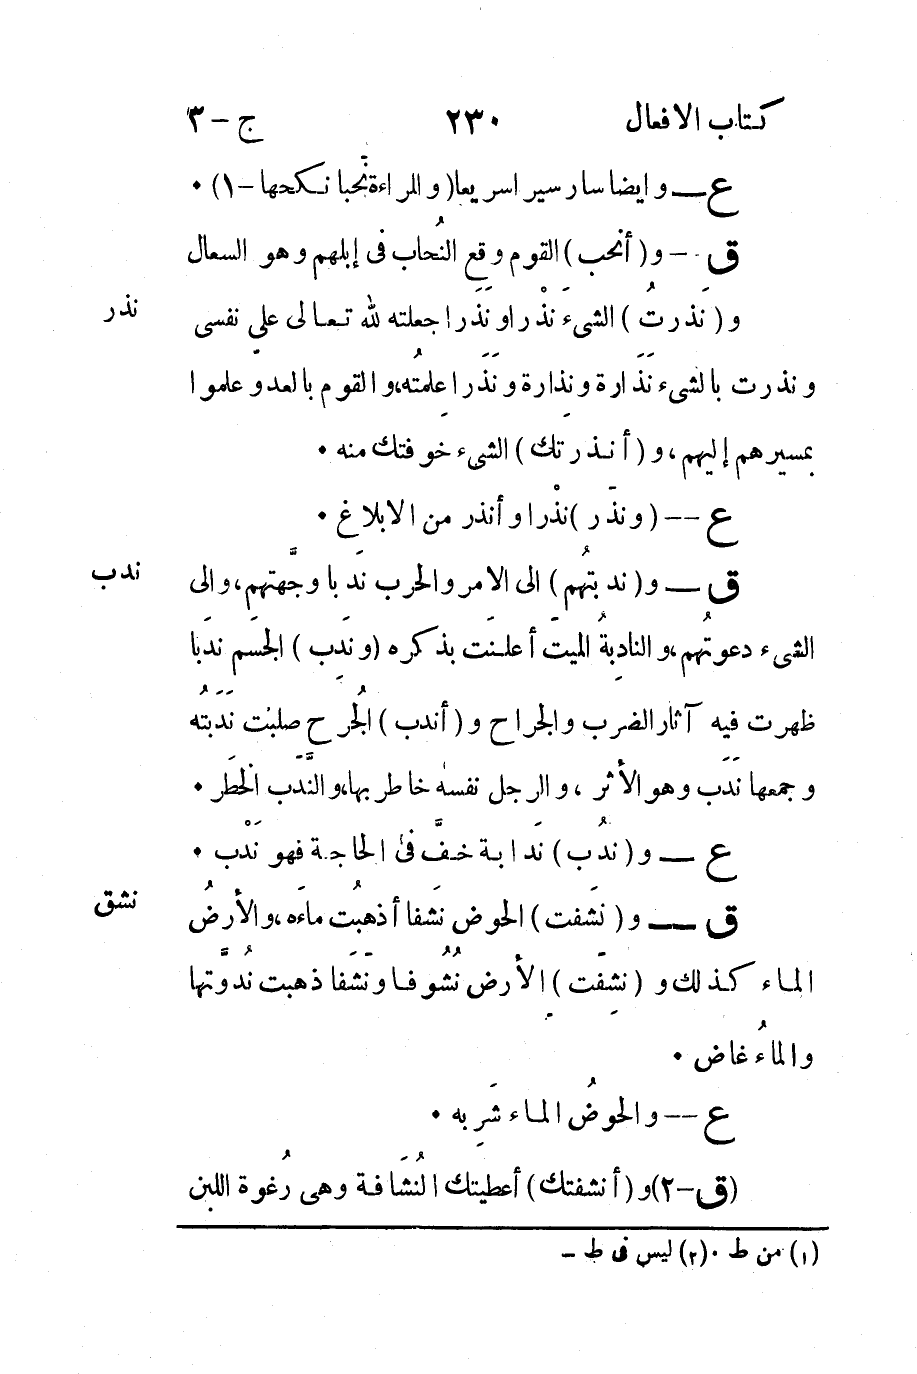 كتاب الافعال ٢٣٠ ج - ٣
ع — و ايضا سار سيرا سريعا (و المراءة نحبا نكحها - ١) •
ق - و (أنحب) القوم وقع النُحاب فى إبلهم وهو السعال
و (نَذرتُ) الشىء نذْرا و نَذَرا جعلته لله تعالى على نفسى نذر
و نذرت بالشىء نَذَارة ونِذارة و نَذَرا علِمتُه، و القوم بالعدو علموا
بمسيرهم إليهم، و (أنذرتك) الشىء خوفتك منه •
ع -- (و نذَر) نذْرا و أنذر من الابلاغ •
ق — و (ندبتُهم) الى الامر والحرب ندَبا وجَّهتهم، والى ندب
الشىء دعوتُهم، و النادبةُ الميتَ أعلنَت بذكره (و ندِب) الجسَم ندَبا
ظهرت فيه آثار الضرب والجراح و (أندب) الجُرح صلبت نَدَبتُه
و جمعها نَدَب وهو الأثر، و الرجل نفسه خاطر بها، و النَّدَب الخَطَر •
ع — و (ندُب) نَدابة خفَّ فى الحاجة فهو نَدْب •
ق — و (نشَفت) الحوضَ نشَفا أذهبتُ ماءَه، و الأرضُ نشق
الماء كذلك و (نشِفَت) الأرض نُشُوفا و نَشَفا ذهبت نُدوَّتها
والماءُ غاض •
ع -- و الحوضُ الماء شَرِبه •
(ق - ٢) و (أنشفتك) أعطيتك النُشَافة وهى رُغوة اللبن
(١) من ط • (٢) ليس فى ط -